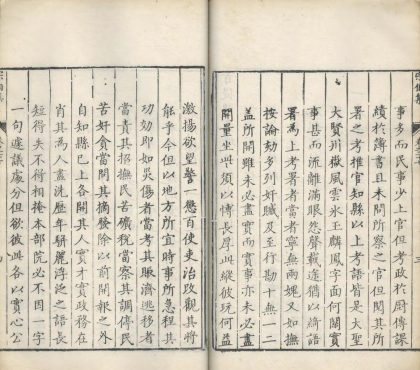 事多而民事少上官但考政於厨傳課
績於薄書且未問所察之官但閱其所
署之考推官知縣以上考語皆是大聖
大賢川嶽風雲氷玉麟鳳字面何關實
事甚而流離滿眼怨聲載道猶以綺語
署為上考署者當者寧無兩媿又如
按論劾多列奸贓及至行勘十無一二
蓋所聞雖未必盡實事亦未必盡
開量坐此須以博長厚此縱彼玩何益
激揚欲望警一懲百使吏治改觀其將
能乎今但以地方所宜時事所急程其
功効即如災傷者當考其賑濟逃移者
當責其招撫民苦礦稅當察其調停民
苦奸貪當問其摘發除以前開報之外
自知縣已上各開其人實才實政務在
肖其為人盡洗歷年駢麗浮泛之語長
短得失不得相掩本部院必不因一字
一句遽議處分但欲彼此各以實心公